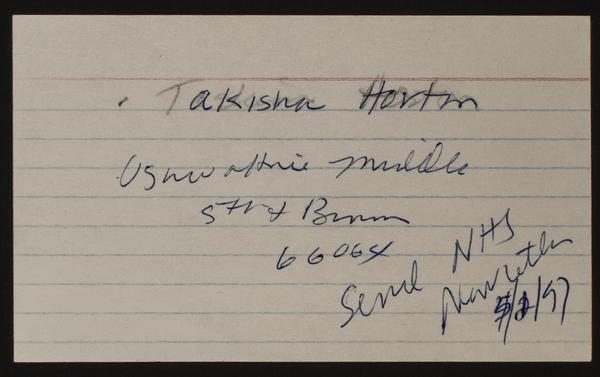 Takisha Horton
Osawatomie Middle
5th & Brown
66064
Send NHS
Newsletter
5/2/97